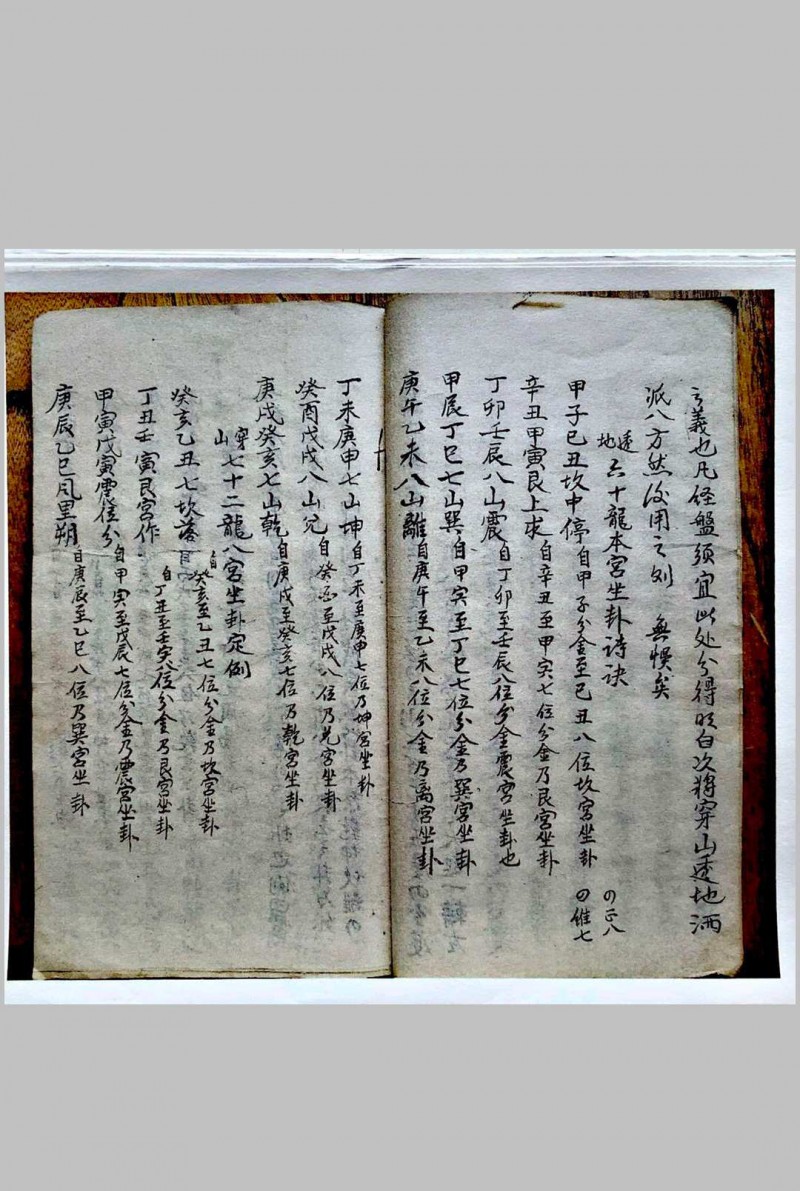 之義也凡経盤須宜此处分得明白次將穿山透地洒
派八方然後用之列 無悞矣
透地六十龍本宮坐卦诗诀 四正八 四維七
甲子已丑坎中停 自甲子分金至已丑八位坎宮坐卦
辛丑甲寅艮上求 自辛丑至甲寅七位分金乃艮宮坐卦
丁卯壬辰八山震 自丁卯至壬辰八位分金震宮坐卦也
甲辰丁巳七山巽 自甲寅至丁巳七位分金乃巽宮坐卦
庚午乙未八山離 自庚午至乙未八位分金乃离宮坐卦
丁未庚申七山坤 自丁未至庚申七位乃坤宮坐卦
癸酉戊戌八山兑 自癸酉至戊戌八位乃兑宮坐卦
庚戌癸亥七山乾 自庚戌至癸亥七位乃乾宮坐卦
穿山七十二龍八宮坐卦定例
癸亥乙丑七坎落 自癸亥至乙丑七位分金乃坎宮坐卦
丁丑壬寅艮宮作 自丁丑至壬寅八位分金乃艮宮坐卦
甲寅戊寅震位分 自甲寅至戊辰七位分金乃震宮坐卦
庚辰乙巳風里朔 自庚辰至乙巳八位乃巽宮坐卦